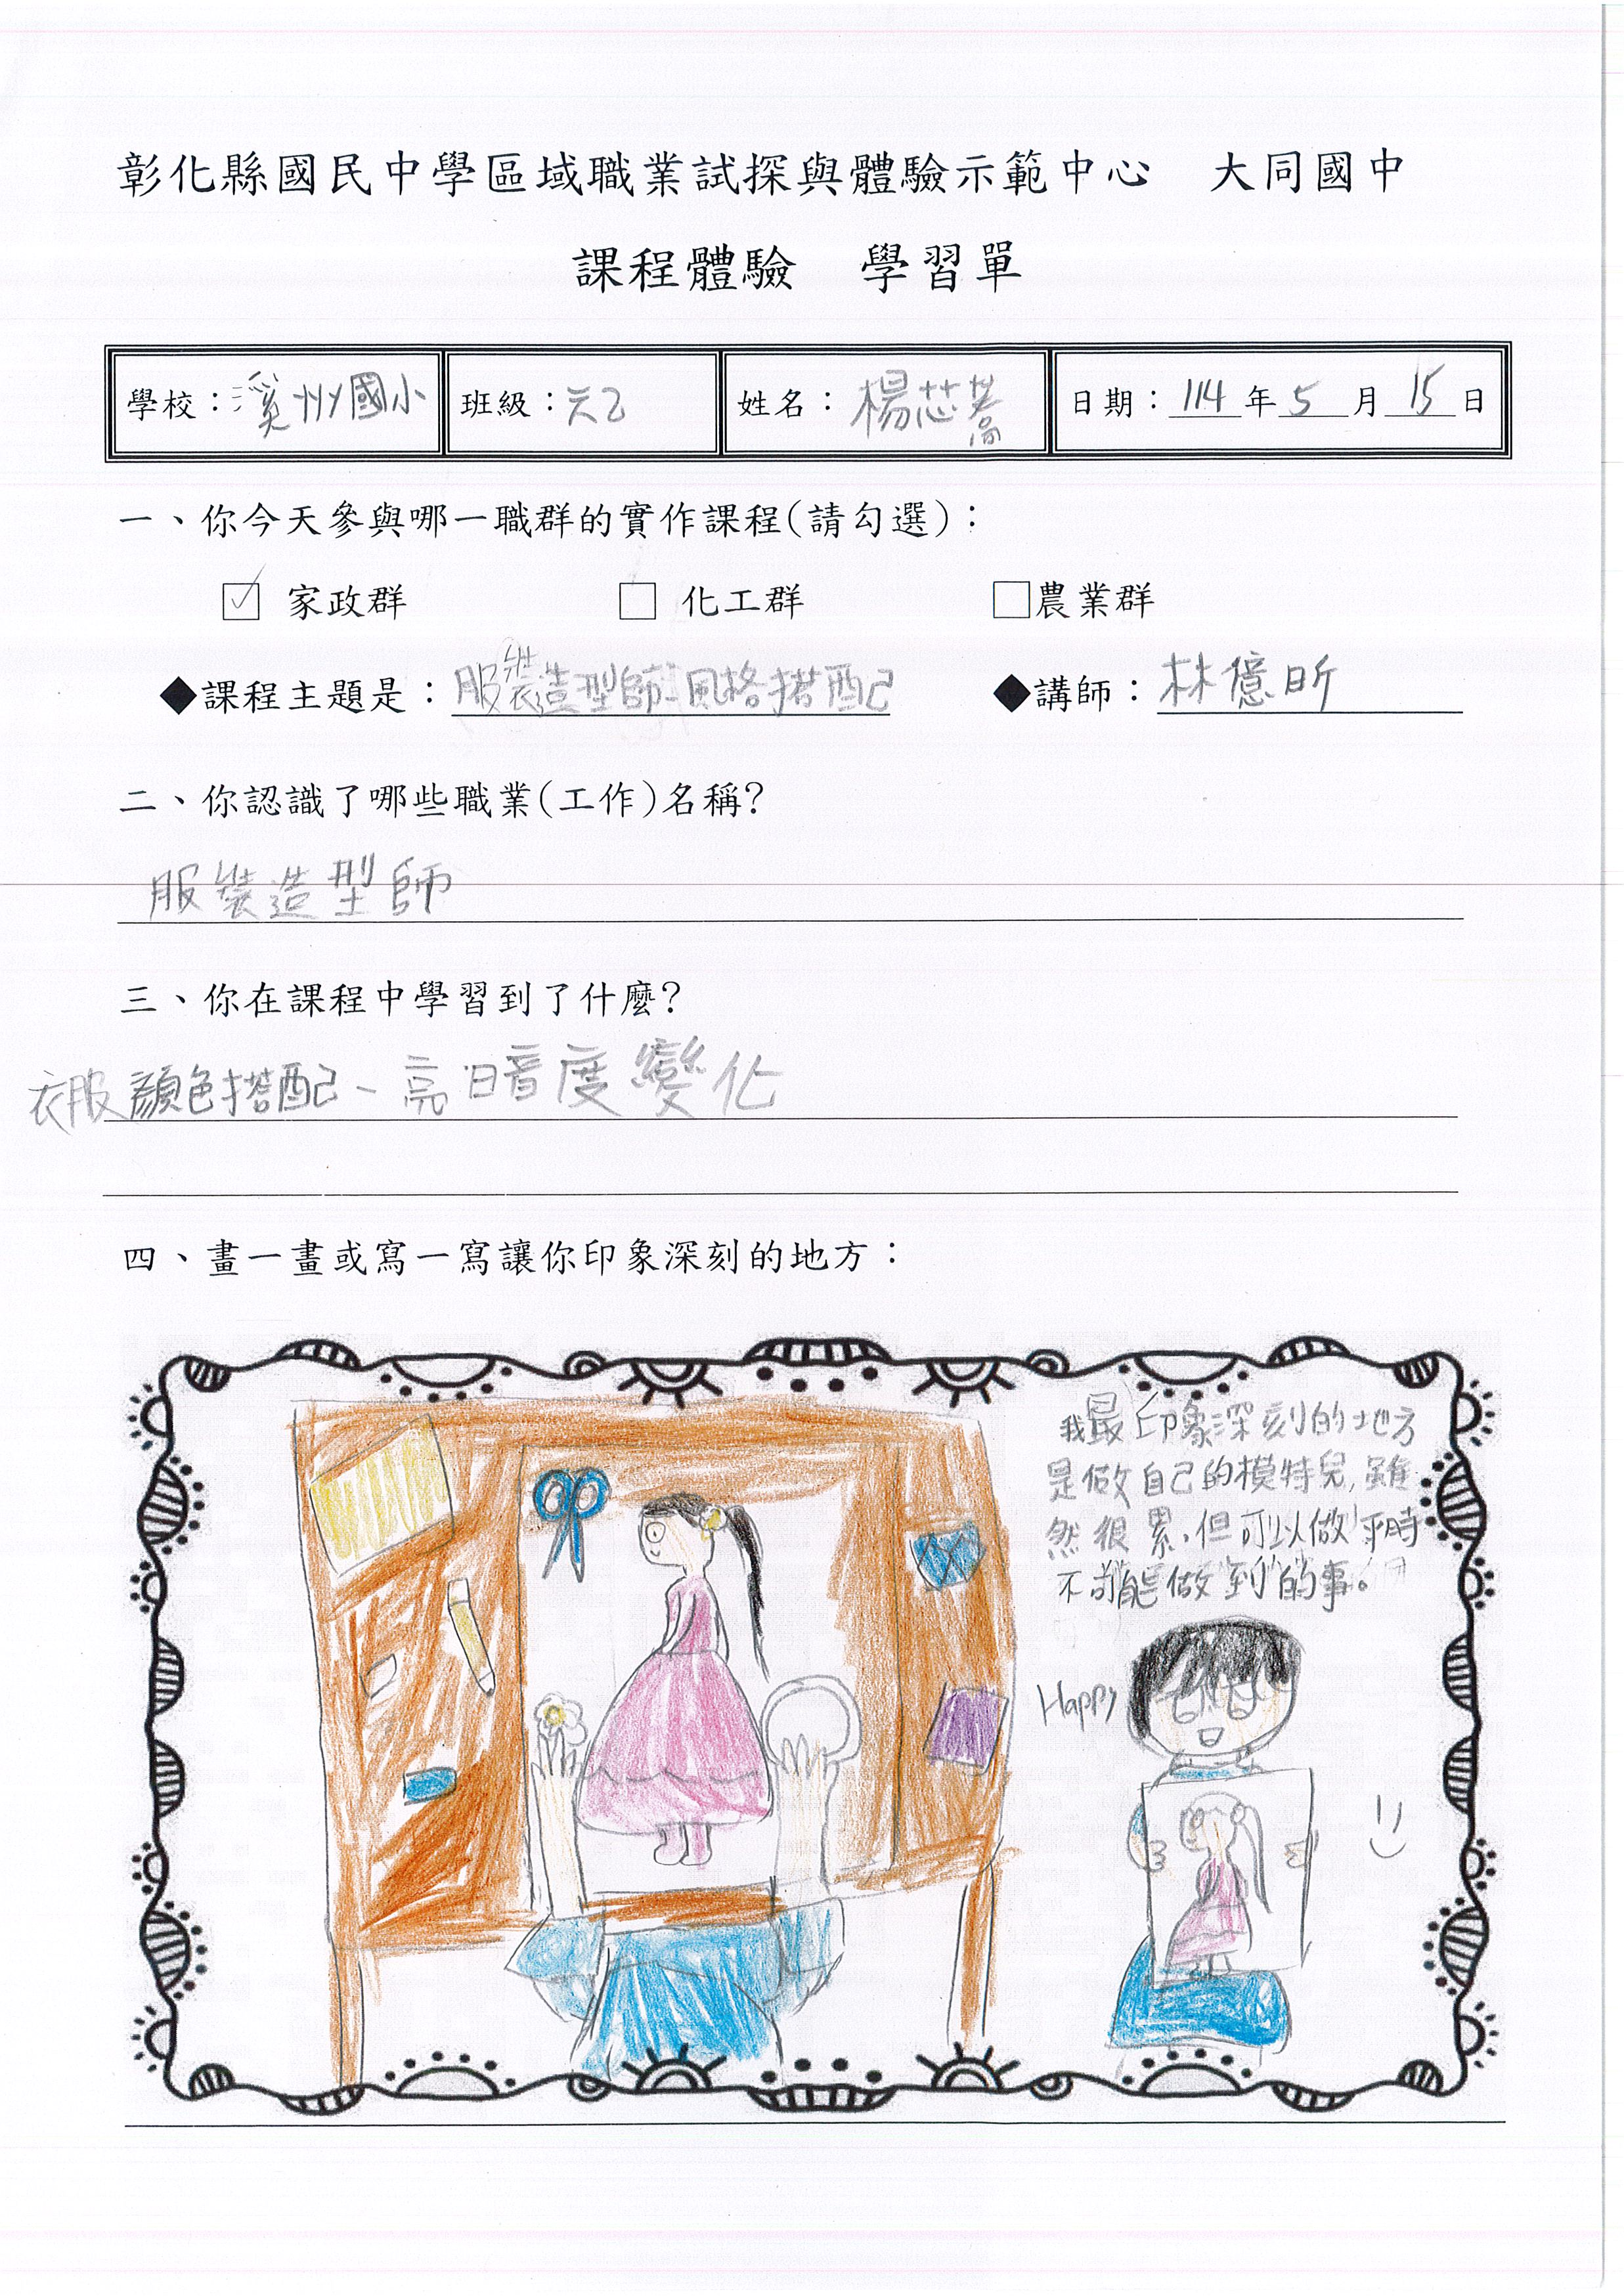 彰化縣國民中學區域職業試探與體驗示範中心　大同國中
課程體驗　學習單
學校：溪州國小 班級：六乙 姓名：楊芯蒿 日期：114年5月15日
一、你今天參與哪一職群的實作課程(請勾選)：
☑ 家政群 □ 化工群 □農業群
◆課程主題是：服裝造型師-風格搭配 ◆講師：林億昕
二、你認識了哪些職業(工作)名稱?
服裝造型師
三、你在課程中學習到了什麼?
衣服顏色搭配、亮暗度變化
四、畫一畫或寫一寫讓你印象深刻的地方：
我最印象深刻的地方
是做自己的模特兒,雖
然很累,但可以做平時
不可能做到的事。
Happy